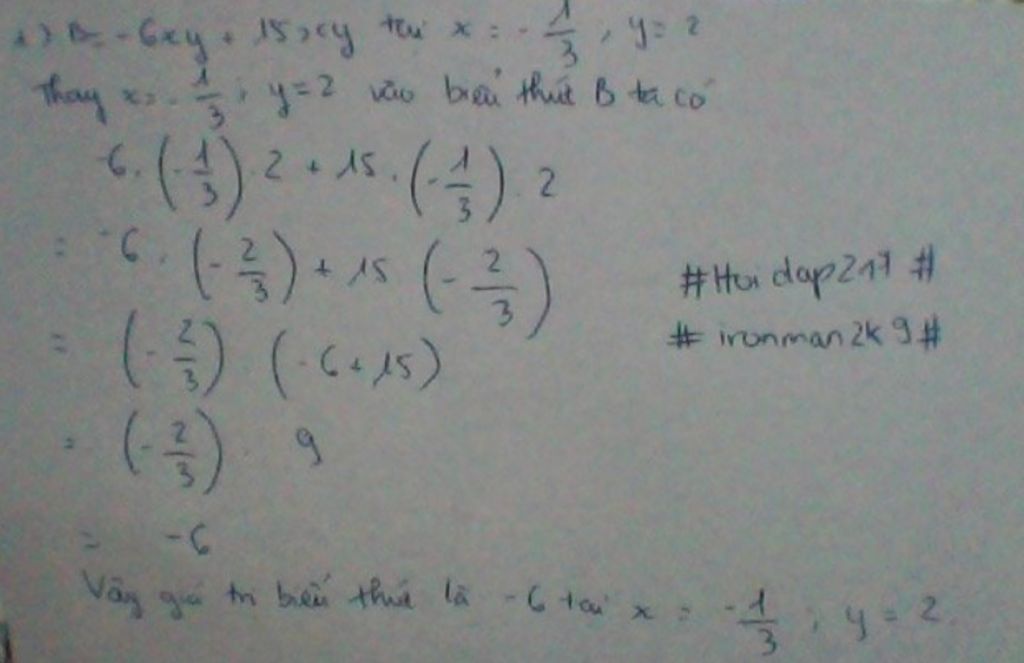 1) B = -6xy + 15xy tại x = -1/3, y = 2
Thay x = -1/3; y = 2 vào biểu thức B ta có
-6.(-1/3).2 + 15.(-1/3).2
= -6.(-2/3) + 15(-2/3)
= (-2/3) (-6 + 15)
= (-2/3) 9
= -6
Vậy giá trị biểu thức là -6 tại x = -1/3; y = 2
#Hoidap247#
#ironman2k9#